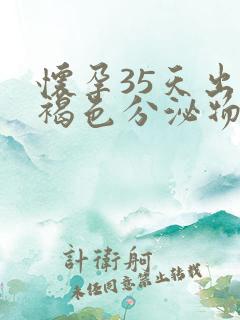 懷孕35天出
褐色分泌物
計衛舸
未经同意禁止转载